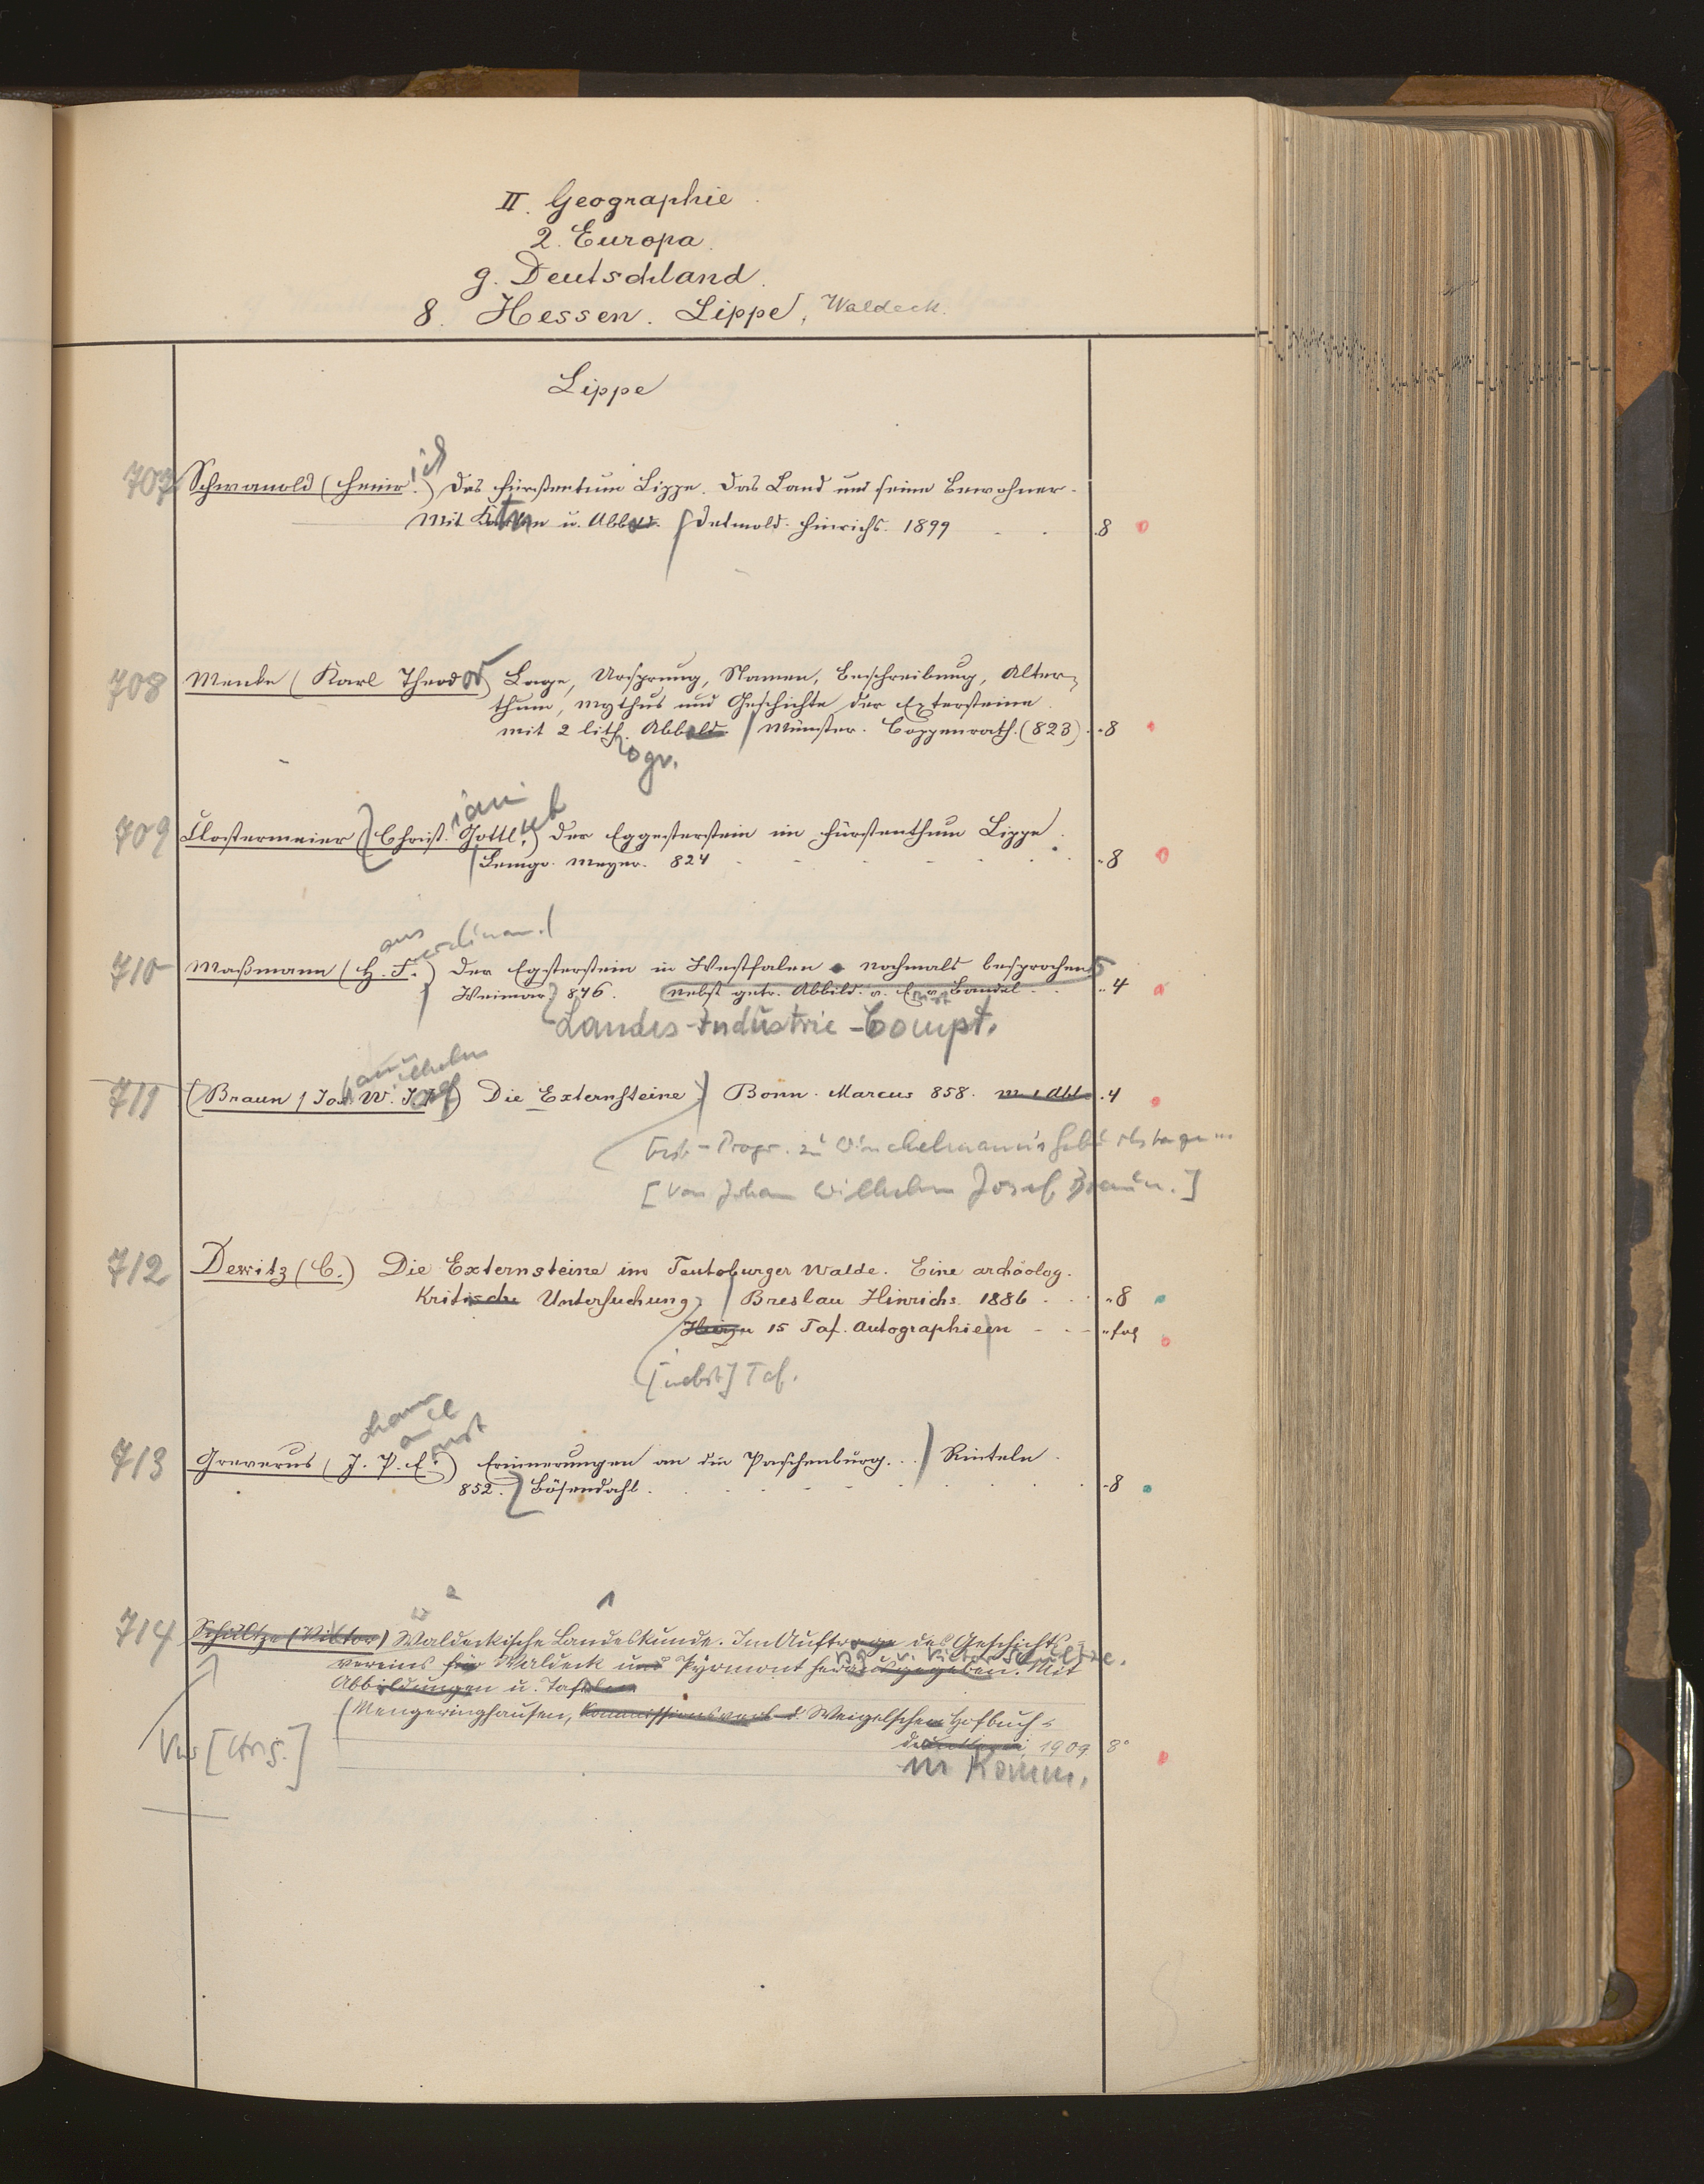 II. Geographie
2. Europa.
g. Deutschland.
8. Hessen. Lippe, Waldeck.
Lippe
ich
707 Schwanold (Heinr.) Das Fürstentum Lippe. Das Land und seine Bewohner.
Mit Karten u. Abbild. Detmold. Hinrichs. 1899 8
708 Menke (Karl Theodor) Lage, Ursprung, Namen, Beschreibung, Alter-
thum, Mythus und Geschichte der Extersteine.
mit 2 lith. Abbild. Münster. Coppenrath. (823) 8
ogr.
ian ieb
709 Clostermeier (Christ. Gottl.) Der Eggesterstein im Fürstenthum Lippe.
Lemgo. Meyer. 824 8
ans erdinand
710 Maßmann (H. F.) Der Egsterstein in Westfalen nochmals besprochen
Weimar 846. nebst getr. Abbild. v. E. v. Bandel 4
Landes-Industrie-Compt.
ann ilhelm
711 (Braun (Joh. W. Josef) Die Externsteine. Bonn. Marcus 858. m. 1 Abb. 4
Fest-Progr. zu Winckelmann's Geburtstage
[Von Johann Wilhelm Josef Braun.]
712 Dewitz (C.) Die Externsteine im Teutoburger Walde. Eine archäolog.
Kritische Untersuchung. Breslau Hinrichs. 1886 8
Hiezu 15 Taf. Autographieen fol
[nebst] Taf.
ohann
aul
rnst
713 Greverus (J. P. E.) Erinnerungen an die Paschenburg. Rinteln.
852. Bösendahl. 8
714 Schultze (Viktor) Waldeckische Landeskunde. Im Auftrage des Geschichts-
vereins für Waldeck und Pyrmont herausgegeben. Mit
hsg v. Victor Schultze.
Abbildungen u. Tafeln
Mengeringhausen, Kommissionsverl. d. Weigelschen Hofbuch-
druckerei, 1909 8°
in Komm.